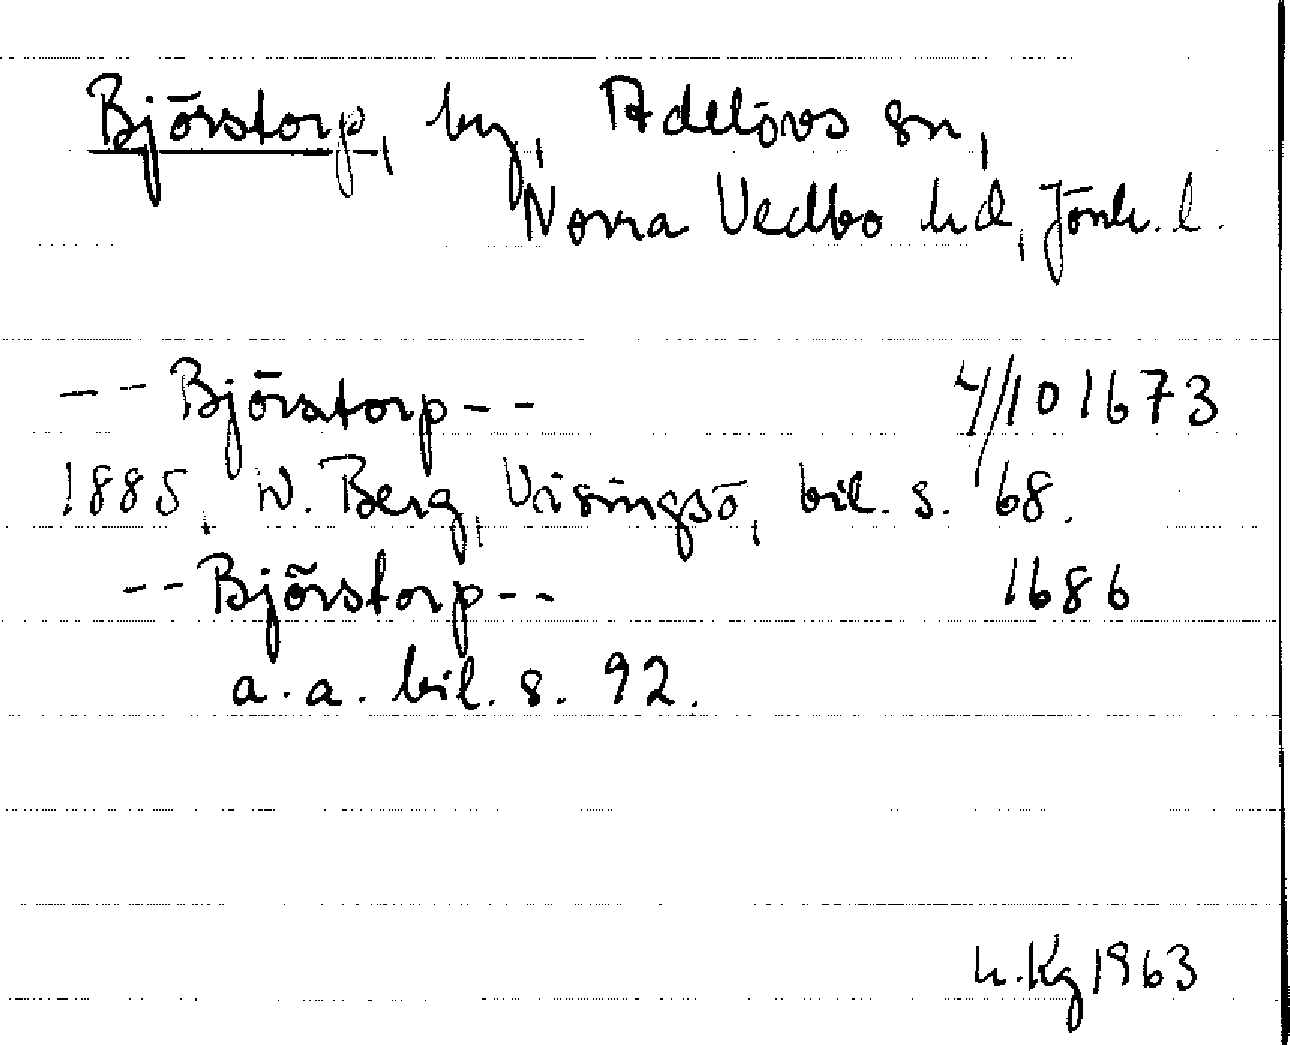 Björstorp, by, Adelövs sn,
Norra Vedbo hd, Jönk. l.
-- Björstorp -- 4/10 1673
1885, W. Berg, Visingsö, bil. s. 68.
-- Björstorp -- 1686
a. a. bil. s. 92.
h. Kg 1963